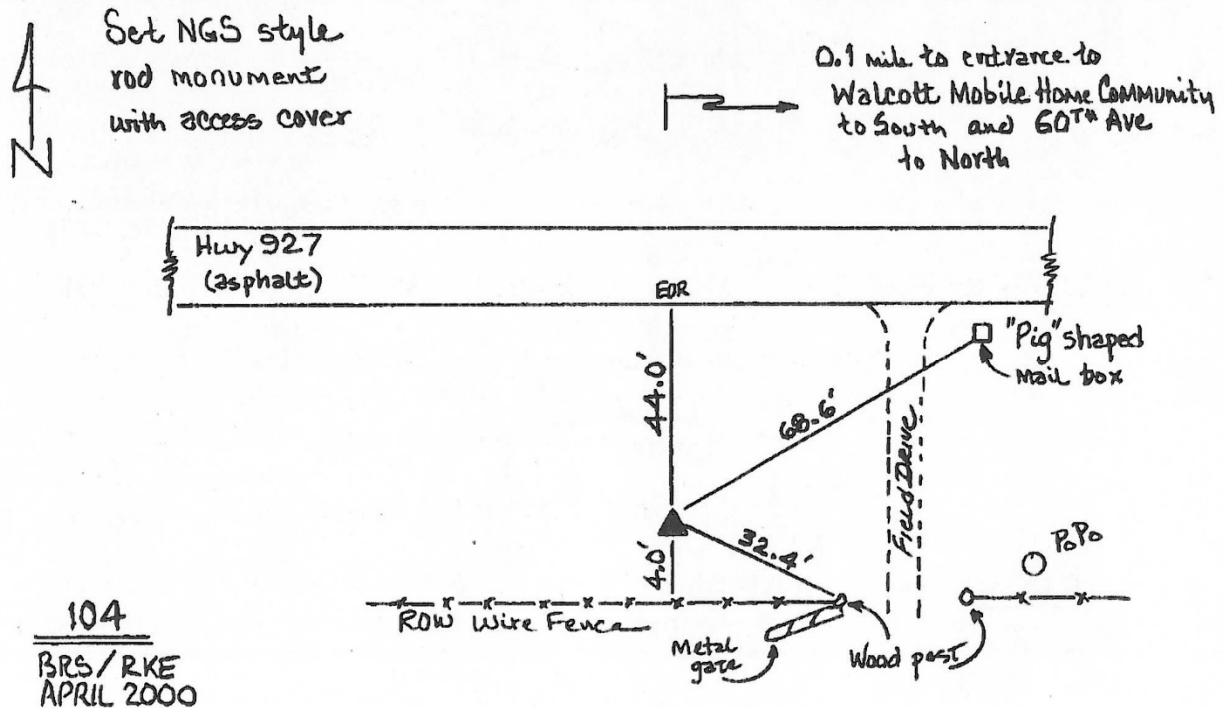 Set NGS style
rod monument
with access cover
N
0.1 mile to entrance to
Walcott Mobile Home Community
to South and 60TH Ave
to North
Hwy 927
(asphalt)
EOR
"Pig" shaped
Mail box
44.0'
68.6'
Field Drive
32.4'
4.0'
PoPo
ROW Wire Fence
Metal
gate
Wood post
104
BRS/RKE
APRIL 2000